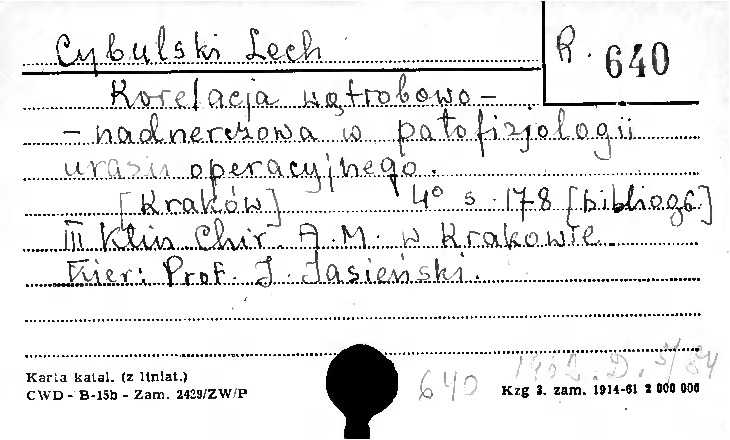 Cybulski Lech
R. 640
Korelacja wątrobowo-
- nadnerczowa w patofizjologii
urazu operacyjnego.
[Kraków] 4° s. 178 [bibliogr.]
III Klin. Chir. A.M. w Krakowie
Kier: Prof. J. Jasieński.
640 1962. D.
Karta katal. (z liniat.)
CWD - B-15b - Zam. 2429/ZW/P
Kzg 3. zam. 1914-61 2 000 000